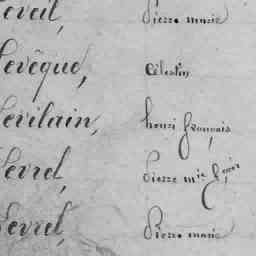 Leveil, Pierre marie
Levêque, Célestin
Levilain, henri françois
Levrel, Pierre m<sup>ie</sup>
Levrel, Pierre marie